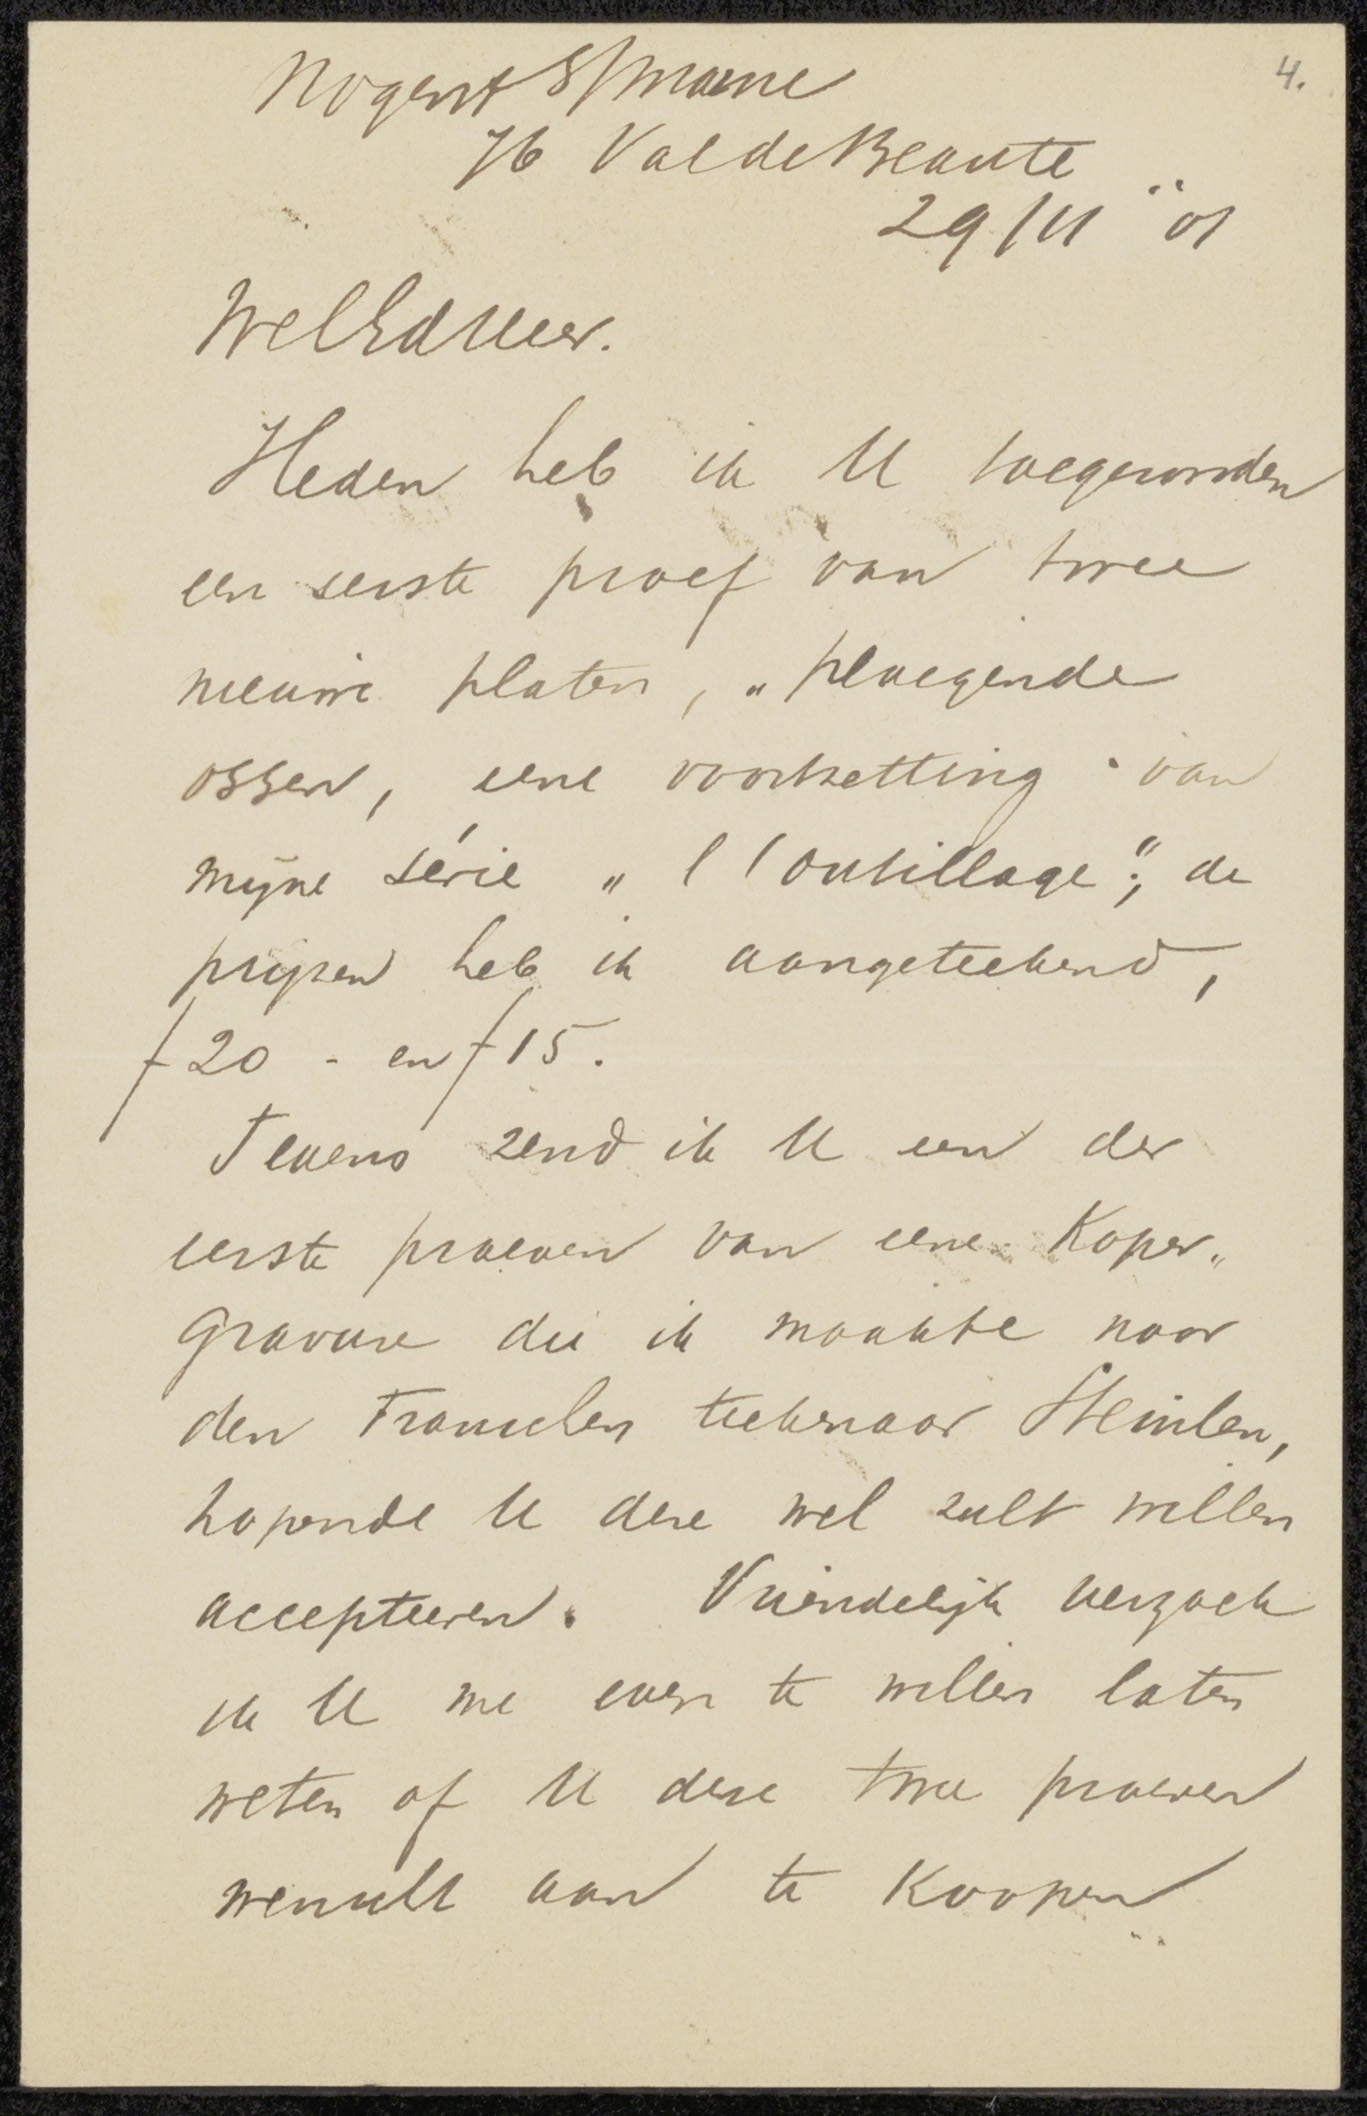 Nogent S/Marne
4.
76 Val de Beaute
29/11 "01
WelEdHeer.
Heden heb ik U toegezonden
een eerste proef van twee
nieuwe platen, „ploegende
ossen, eene voortzetting van
mijne série „l'outillage"; de
prijzen heb ik aangeteekend,
f 20 - en f 15.
Tevens zend ik U een der
eerste proeven van eene Koper„
gravure die ik maakte naar
den Franschen teekenaar Steinlen,
hopende U deze wel zult willen
accepteeren. Vriendelijk verzoek
ik U me even te willen laten
weten of U deze twee proeven
wenscht aan te Koopen